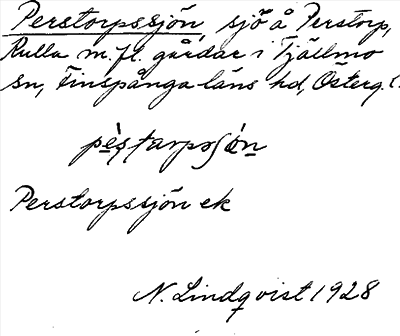 Perstorpssjön, sjö å Perstorp,
Rulla m.fl. gårdar i Tjällmo
sn, Finspånga läns hd, Österg. l.
pèstarpsʃón
Perstorpssjön ek
N. Lindqvist 1928